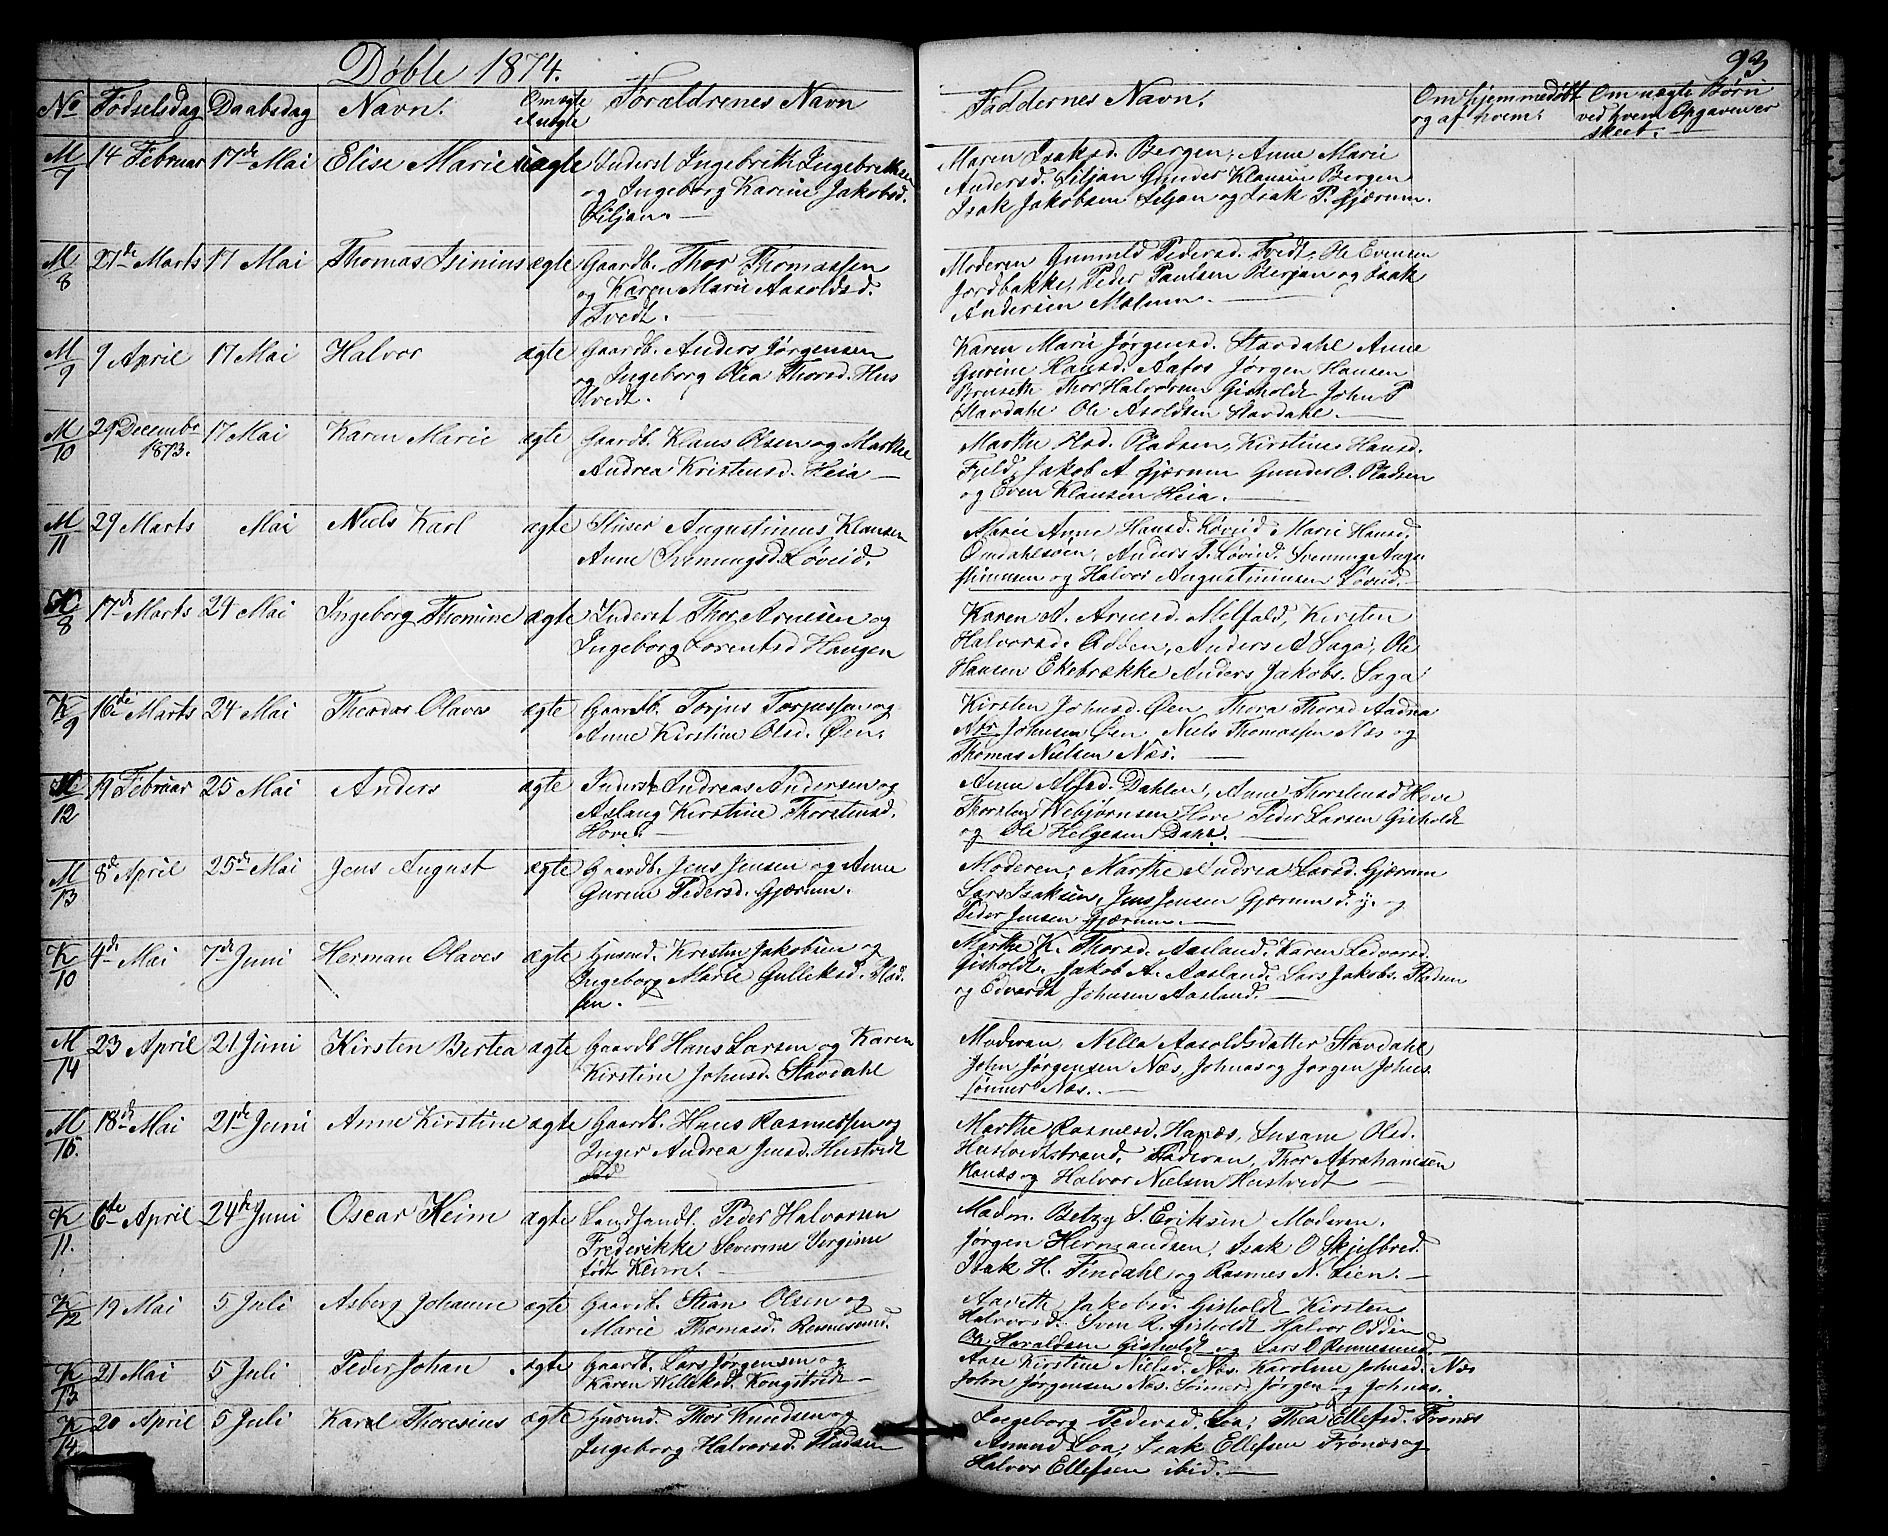 Døbte 1874.
93
No Fødselsdag Daabsdag Navn. Om ægte Uægte Forældrenes Navn
Faddernes Navn. Om hjemmedøbt og af hvem. Om uægte Børn ved hvem Opgaven er skeet.
M/7 14 Februar 17de Mai Elise Marie uægte Inderst Ingebrikt Ingebriktsen
og Ingeborg Karine Jakobsd.
Siljan. —
Maren Isaksd. Bergen, Anne Marie
Andersd. Siljan Gunder Klausen Bergen
Isak Jakobsen Siljan og Isak P. Gjærum.
M/8 27de Marts 17 Mai Thomas Isinius ægte Gaardb. Thor Thomassen
og Karen Marie Aasoldsd.
Tvedt.
Moderen Gunnild Pedersd. Tvedt, Ole Evensen
Jordbakke, Peder Paulsen Berjan og Isak
Andersen Malum. —
M/9 9 April 17 Mai Halvor ægte Gaardb. Anders Jørgensen
og Ingeborg Olea Thorsd. Hus
tvedt.
Karen Marie Jørgensd. Stavdahl Anne
Gurine Hansd. Aafos Jørgen Hansen
Bruseth Thor Halvorsen Gisholdt John P
Stavdahl Ole Asoldsen Stavdahl. —
M/10 29 Decembr 1873. 17 Mai Karen Marie ægte Gaardb. Klaus Olsen og Marthe
Andrea Kristensd. Heia —
Marthe Hsd. Pladsen, Kirstine Hansd.
Fjeld, Jakob A. Gjærum Gunder O. Pladsen
og Even Klausen Heia. —
M/11 29 Marts Mai Niels Karl ægte Sluser Augustinus Klausen
Anne Svenungsd. Løveid.
Marie Anne Hansd. Løveid, Marie Hansd.
Omdahlsøen, Anders P. Løveid. Svenung Augu
stinusen og Halvor Augustinusen Løveid. —
K/8 17de Marts 24 Mai Ingeborg Thomine ægte Inderst Thor Arnesen og
Ingeborg Lorentsd Haugen
Karen A. Arnesd. Melfald, Kirsten
Halvorsd. Odden, Anders A Saga, Ole
Hansen Ekebrække Anders Jakobs. Saga
K/9 16de Marts 24 Mai Theodor Olaves ægte Gaardb. Torjus Torjussen og
Anne Kirstine Olsd. Øen.
Kirsten Johnsd. Øen, Thora Thorsd Aadna
Nes Johnsen Øen Niels Thomassen Næs og
Thomas Nielsen Næs.
M/12 19 Februar 25 Mai Anders ægte Inderst Andreas Andersen og
Aslaug Kirstine Thorstensd.
Hove. —
Anne Alfsd. Dahlen, Anne Thorstensd Hove
Thorsten Vebjørnsen Hove Peder Larsen Gisholdt
og Ole Helgesen Dahl. —
M/13 8de April 25de Mai Jens August ægte Gaardb. Jens Jensen og Anne
Gurine Pedersd. Gjærum.
Moderen, Marthe Andrea Larsd. Gjærum
Lars Isaksen, Jens Jensen Gjærum d. y. og
Peder Jensen Gjærum. —
K/10 4de Mai 7de Juni Herman Olaves ægte Husmd. Kirsten Jakobsen og
Ingeborg Marie Gulliksd. Plad-
sen. —
Marthe K. Thorsd. Aasland. Karen Ledvorsd.
Gisholdt. Jakob A. Aasland. Lars Jakobs. Pladsen
og Edvardt Johnsen Aasland. —
M/14 23 April 21 Juni Kirsten Bertea ægte Gaardb Hans Larsen og Karen
Kirstine Johnsd. Stavdahl
Moderen Nella Aasoldsdatter Stavdahl
John Jørgensen Næs, Johnas og Jørgen Johns
sønner Næs. —
M/15. 18de Mai 21de Juni Anne Kirstine ægte Gaardb. Hans Rasmussen og
Inger Andrea Jensd. Hustvedt
Marthe Rasmusd. Hanæs, Susane Olsd.
Hustvedtstrand. Faderen, Thor Abrahamsen
Hanæs og Halvor Nielsen Hustvedt —
K/11. 6te April 24de Juni Oscar Keim ægte Landhandl. Peder Halvorsen
Frederikke Severine Jørgine
født Keim. —
Madm. Betzy S. Eriksen Moderen.
Jørgen Hermandsen, Isak O Skjelbred.
Isak H. Findahl og Rasmus N. Lien. —
K/12 19 Mai 5 Juli Asberg Johanne ægte Gaardb. Stian Olsen og
Marie Thomasd. Rennesund.
Aaveth Jakobsd. Gisholdt Kirsten
Halvorsd. Sven R. Gisholdt Halvor Odden
Ole Haraldsen Gisholdt og Lars D Rennesund.
K/13 21 Mai 5 Juli Peder Johan ægte Gaardb. Lars Jørgensen og
Karen Nilsd. Kongstvedt —
Aase Kirstine Nielsd. Næs. Karoline Johnsd. Næs
John Jørgensen Næs. Sønner, Jørgen og Johnas.
K/14 20 April 5 Juli Karl Thoresius ægte Husmd. Thor Knudsen og
Ingeborg Halvorsd. Pladsen
Ingeborg Pedersd. Loa, Thea Ellefsd. Frønes
Amund Loa, Isak Ellefsen Frønæs og
Halvor Ellefsen ibid. —